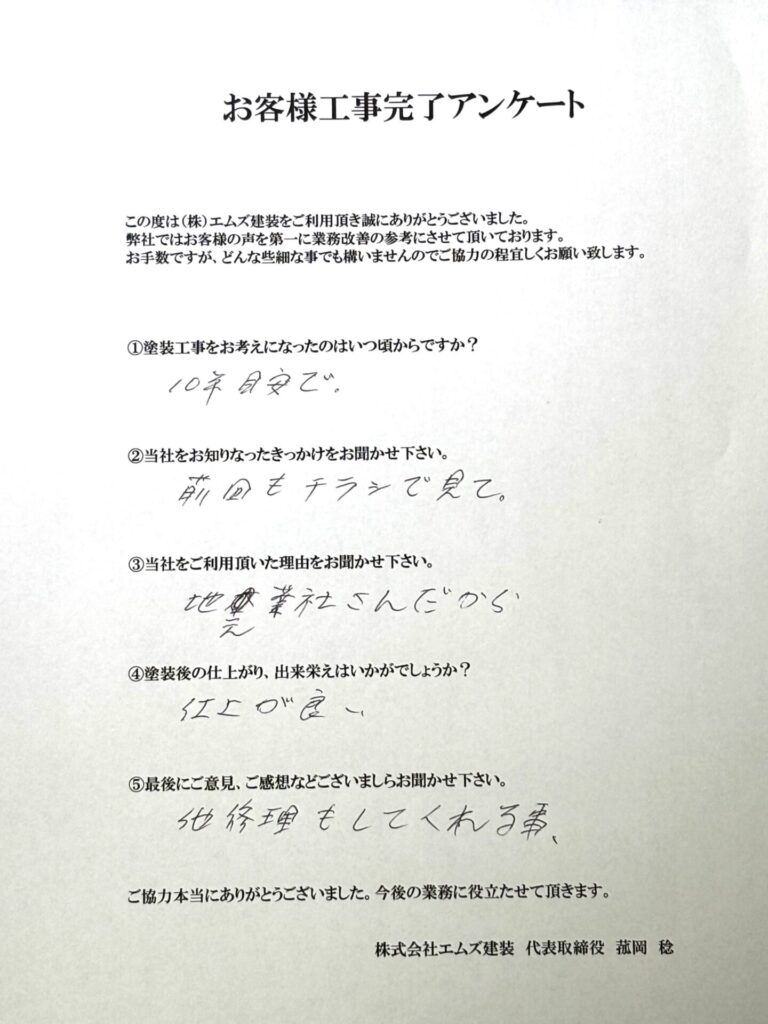 お客様工事完了アンケート
この度は(株)エムズ建装をご利用頂き誠にありがとうございました。
弊社ではお客様の声を第一に業務改善の参考にさせて頂いております。
お手数ですが、どんな些細な事でも構いませんのでご協力の程宜しくお願い致します。
①塗装工事をお考えになったのはいつ頃からですか?
10年目安で。
②当社をお知りなったきっかけをお聞かせ下さい。
前回もチラシで見て。
③当社をご利用頂いた理由をお聞かせ下さい。
地元業社さんだから
④塗装後の仕上がり、出来栄えはいかがでしょうか?
仕上が良い、
⑤最後にご意見、ご感想などございましらお聞かせ下さい。
他修理もしてくれる事、
ご協力本当にありがとうございました。今後の業務に役立たせて頂きます。
株式会社エムズ建装 代表取締役 菰岡 稔